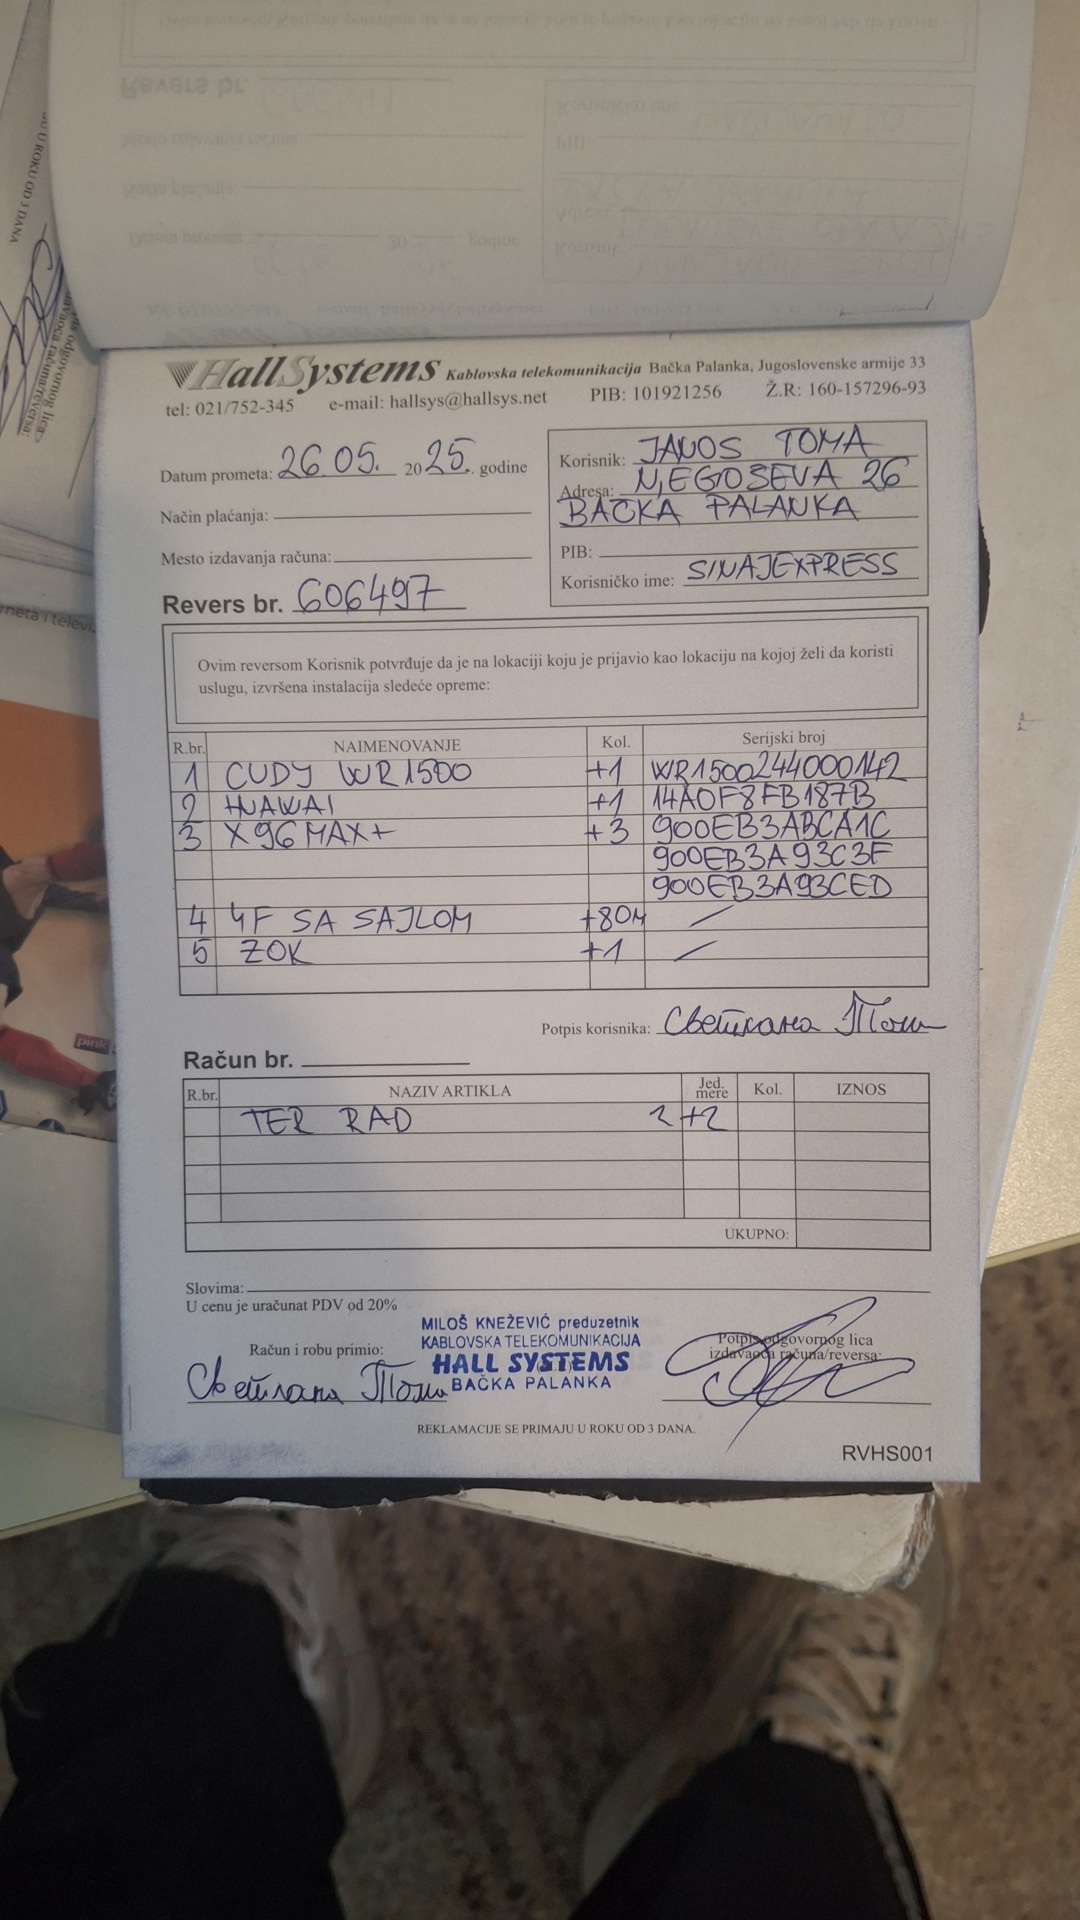 HallSystems Kablovska telekomunikacija Bačka Palanka, Jugoslovenske armije 33
tel: 021/752-345 e-mail: hallsys@hallsys.net PIB: 101921256 Ž.R: 160-157296-93
Datum prometa: 26.05. 2025. godine
Način plaćanja:
Mesto izdavanja računa:
Revers br. 606497
Korisnik: JANOS TOMA
Adresa: NJEGOSEVA 26
BAČKA PALANKA
PIB:
Korisničko ime: SINAJEXPRESS
Ovim reversom Korisnik potvrđuje da je na lokaciji koju je prijavio kao lokaciju na kojoj želi da koristi
uslugu, izvršena instalacija sledeće opreme:
R.br. NAIMENOVANJE Kol. Serijski broj
1 CUDY WR1500 +1 WR1500244000142
2 HUAWAI +1 14A0F8FB187B
3 X96 MAX+ +3 900EB3ABCA1C
900EB3A93C3F
900EB3A93CED
4 4F SA SAJLOM +80M /
5 ZOK +1 /
Potpis korisnika: Светлана Тома
Račun br.
R.br. NAZIV ARTIKLA Jed. mere Kol. IZNOS
TER RAD 2 +2
UKUPNO:
Slovima:
U cenu je uračunat PDV od 20%
Račun i robu primio:
Светлана Тома
MILOŠ KNEŽEVIĆ preduzetnik
KABLOVSKA TELEKOMUNIKACIJA
HALL SYSTEMS
BAČKA PALANKA
Potpis odgovornog lica
izdavaoca računa/reversa:
REKLAMACIJE SE PRIMAJU U ROKU OD 3 DANA.
RVHS001
U ROKU OD 3 DANA
odgovornog lica
računa/reversa:
neta i televi
pink